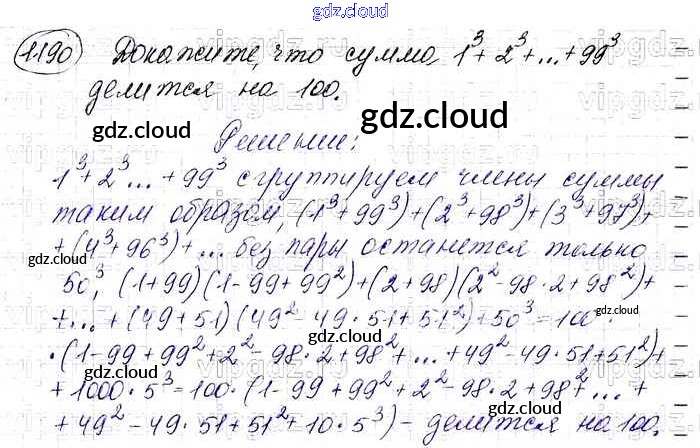 gdz.cloud
1190 Докажите, что сумма 1³+2³+...+99³
делится на 100.
gdz.cloud
gdz.cloud
Решение:
1³+2³...+99³ сгруппируем члены суммы
таким образом, (1³+99³)+(2³+98³)+(3³+97³)+
gdz.cloud
+(4³+96³)+... без пары останется только
50³, (1+99)(1-99+99²)+(2+98)(2²-98·2+98²)+
+...+(49+51)(49²-49·51+51²)+50³=100·
gdz.cloud
·(1-99+99²+2²-98·2+98²+...+49²-49·51+51²)+
+1000·5³=100·(1-99+99²+2²-98·2+98²+...+
+49²-49·51+51²+10·5³)-делится на 100.
gdz.cloud
gdz.cloud